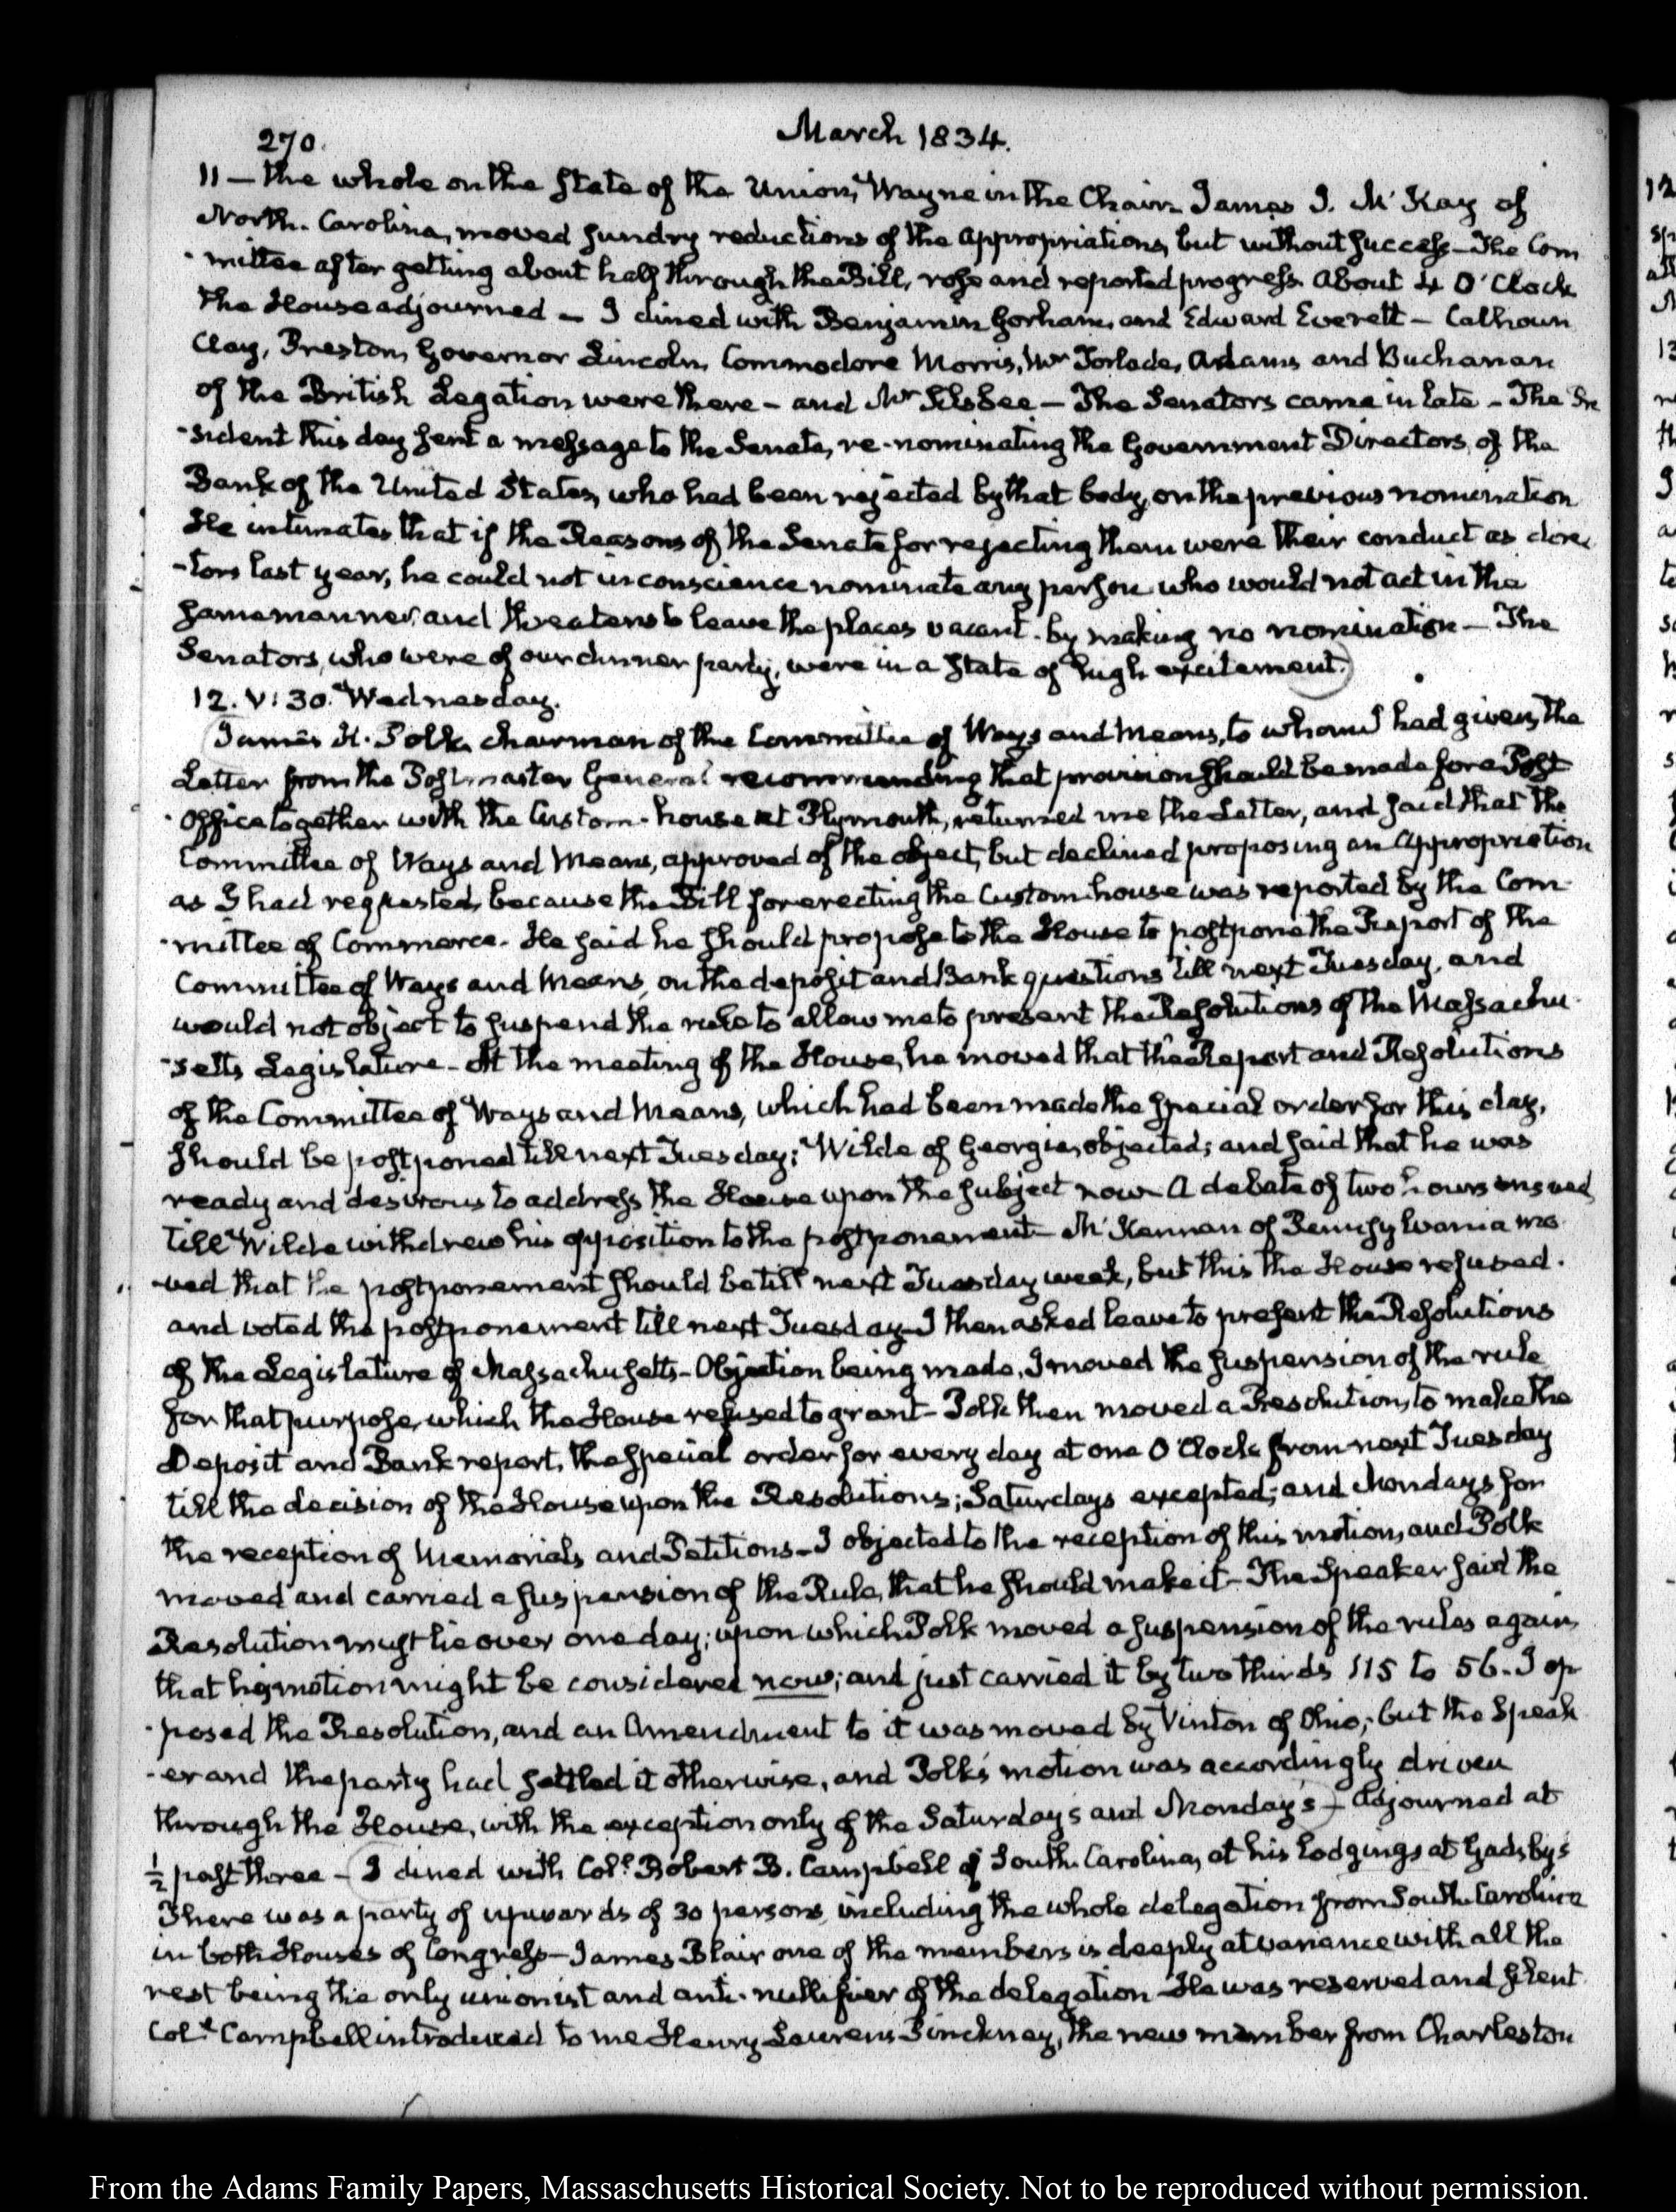 270.
March 1834.
11 — the whole on the State of the Union, Wayne in the Chair. James I. McKay of
North-Carolina, moved sundry reductions of the appropriations, but without success — The Com
-mittee after getting about half through the Bill, rose and reported progress. About 4 O'Clock
the House adjourned — I dined with Benjamin Gorham, and Edward Everett — Calhoun
Clay, Preston, Governor Lincoln, Commodore Morris, Mr Torlade, Adams and Buchanan
of the British Legation were there — and Mr Silsbee — The Senators came in late — The Pre
-sident this day sent a message to the Senate, re-nominating the Government Directors, of the
Bank of the United States, who had been rejected by that body, on the previous nomination
He intimates that if the Reasons of the Senate for rejecting them were their conduct as direc
-tors last year, he could not in conscience nominate any person who would not act in the
same manner, and threatens to leave the places vacant. by making no nomination — The
Senators, who were of our dinner party, were in a State of high excitement.
12. V: 30. Wednesday.
James K. Polk, chairman of the Committee of Ways and Means, to whom I had given, the
Letter from the Postmaster General recommending that provision should be made for a Post
-Office together with the Custom-house at Plymouth, returned me the Letter, and said that the
Committee of Ways and Means, approved of the object, but declined proposing an Appropriation
as I had requested, because the Bill for erecting the Custom house was reported by the Com
-mittee of Commerce. He said he should propose to the House to postpone the Report of the
Committee of Ways and Means, on the deposit and Bank questions till next Tuesday, and
would not object to suspend the rule to allow me to present the Resolutions of the Massachu
-setts Legislature — At the meeting of the House, he moved that the Report and Resolutions
of the Committee of Ways and Means, which had been made the special order for this day,
should be postponed till next Tuesday; Wilde of Georgia, objected; and said that he was
ready and desirous to address the House upon the subject now — A debate of two hours ensued
till Wilde withdrew his opposition to the postponement — McKennan of Pennsylvania mo
-ved that the postponement should be till next Tuesday week, but this the House refused.
and voted the postponement till next Tuesday — I then asked leave to present the Resolutions
of the Legislature of Massachusetts — Objection being made, I moved the suspension of the rule
for that purpose, which the House refused to grant — Polk then moved a Resolution, to make the
Deposit and Bank report, the special order for every day at one O'Clock from next Tuesday
till the decision of the House upon the Resolutions; Saturdays excepted; and Mondays for
the reception of Memorials and Petitions — I objected to the reception of this motion, and Polk
moved and carried a suspension of the Rule, that he should make it — The Speaker said the
Resolution must lie over one day; upon which Polk moved a suspension of the rules again,
that his motion might be considered now; and just carried it by two thirds 115 to 56. I op
-posed the Resolution, and an Amendment to it was moved by Vinton of Ohio; but the Speak
-er and the party had settled it otherwise, and Polk's motion was accordingly driven
through the House, with the exception only of the Saturday's and Monday's — Adjourned at
½ past three — I dined with Coll. Robert B. Campbell of South-Carolina, at his Lodgings at Gadsby's
There was a party of upwards of 30 persons, including the whole delegation from South Carolina
in both Houses of Congress — James Blair one of the members is deeply at variance with all the
rest being the only unionist and anti-nullifier of the delegation — He was reserved and silent
Coll. Campbell introduced to me Henry Laurens Pinckney, the new member from Charleston
From the Adams Family Papers, Massachusetts Historical Society. Not to be reproduced without permission.